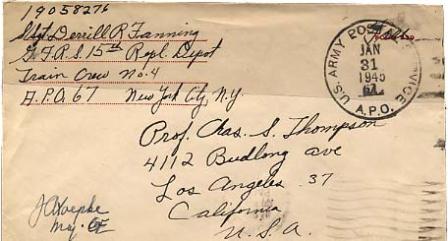 19058276
Sgt Derrill R Fanning
G.F.R.S. 15th Repl. Depot
Train Crew No. 4
A.P.O. 67 New York City, N.Y.
U.S. ARMY POSTAL SERVICE
JAN
31
1945
A.P.O.
Prof. Chas. S. Thompson
4112 Budlong ave
Los Angeles 37
California
U.S.A.